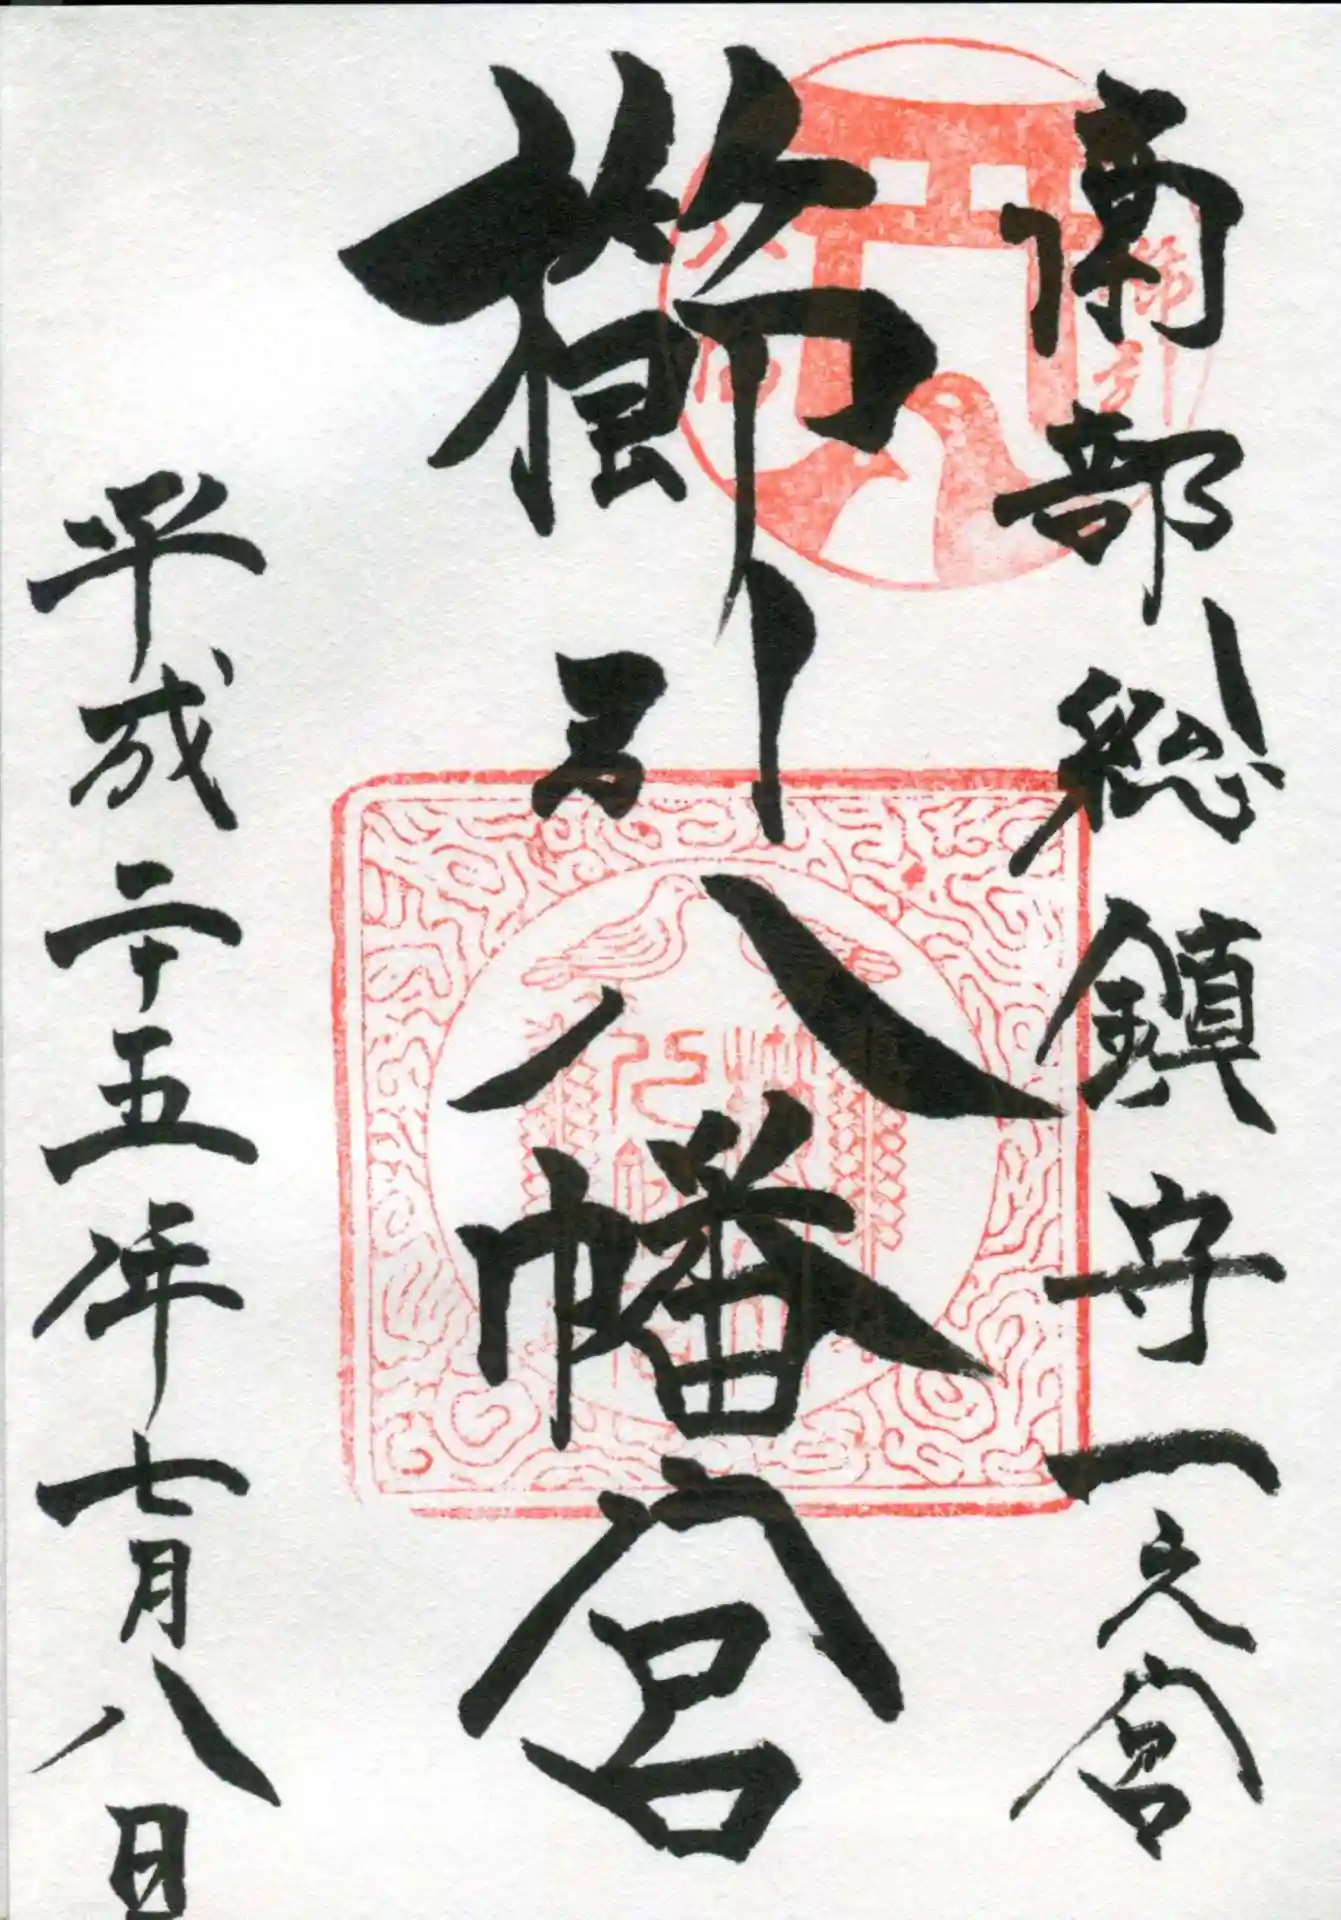 南部総鎮守一之宮
櫛引八幡宮
平成二十五年七月八日
櫛引
八幡